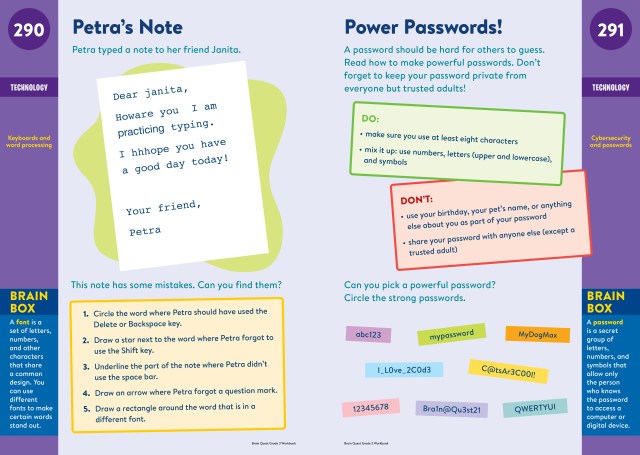 290
TECHNOLOGY
Keyboards and
word processing
BRAIN
BOX
A font is a
set of letters,
numbers,
and other
characters
that share
a common
design. You
can use
different
fonts to make
certain words
stand out.
Petra's Note
Petra typed a note to her friend Janita.
Dear janita,
Howare you I am
practicing typing.
I hhhope you have
a good day today!
Your friend,
Petra
This note has some mistakes. Can you find them?
1. Circle the word where Petra should have used the
Delete or Backspace key.
2. Draw a star next to the word where Petra forgot to
use the Shift key.
3. Underline the part of the note where Petra didn't
use the space bar.
4. Draw an arrow where Petra forgot a question mark.
5. Draw a rectangle around the word that is in a
different font.
Brain Quest Grade 2 Workbook
Power Passwords!
A password should be hard for others to guess.
Read how to make powerful passwords. Don't
forget to keep your password private from
everyone but trusted adults!
DO:
• make sure you use at least eight characters
• mix it up: use numbers, letters (upper and lowercase),
and symbols
DON'T:
• use your birthday, your pet's name, or anything
else about you as part of your password
• share your password with anyone else (except a
trusted adult)
Can you pick a powerful password?
Circle the strong passwords.
abc123
mypassword
MyDogMax
I_L0ve_2C0d3
C@tsAr3C00l!
12345678
Bra1n@Qu3st21
QWERTYUI
Brain Quest Grade 2 Workbook
291
TECHNOLOGY
Cybersecurity
and passwords
BRAIN
BOX
A password
is a secret
group of
letters,
numbers, and
symbols that
allow only
the person
who knows
the password
to access a
computer or
digital device.